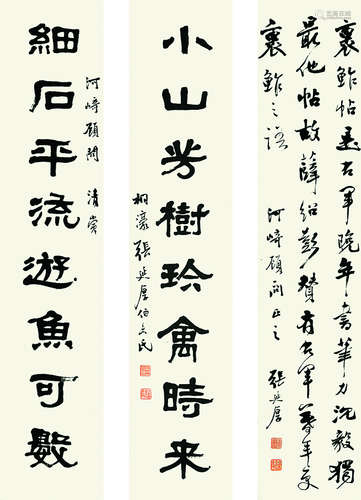 裹鮓帖右軍晚年書筆力沉毅獨
最他帖故薛紹彭贊有右軍暮年更
裹鮓之語
河崎顧問正之
張延厚
小山芳樹珍禽時来
張延厚
細石平流遊魚可數
河崎顧問 清賞